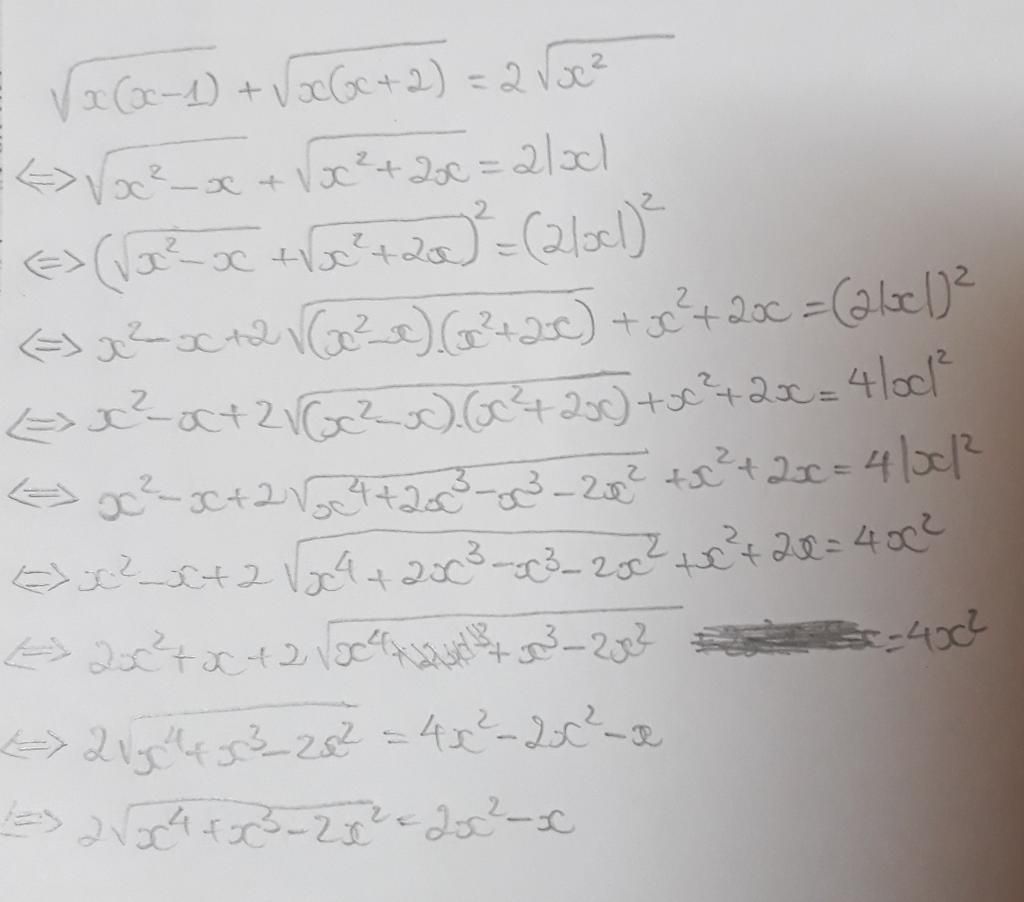 √x(x-1) + √x(x+2) = 2√x²
⇔ √x²-x + √x²+2x = 2|x|
⇔ (√x²-x + √x²+2x)² = (2|x|)²
⇔ x²-x+2√(x²-x).(x²+2x) + x²+2x = (2|x|)²
⇔ x²-x+2√(x²-x).(x²+2x) + x²+2x = 4|x|²
⇔ x²-x+2√x⁴+2x³-x³-2x² + x²+2x = 4|x|²
⇔ x²-x+2√x⁴+2x³-x³-2x² + x²+2x = 4x²
⇔ 2x²+x+2√x⁴+x³-2x² = 4x²
⇔ 2√x⁴+x³-2x² = 4x²-2x²-x
⇔ 2√x⁴+x³-2x² = 2x²-x